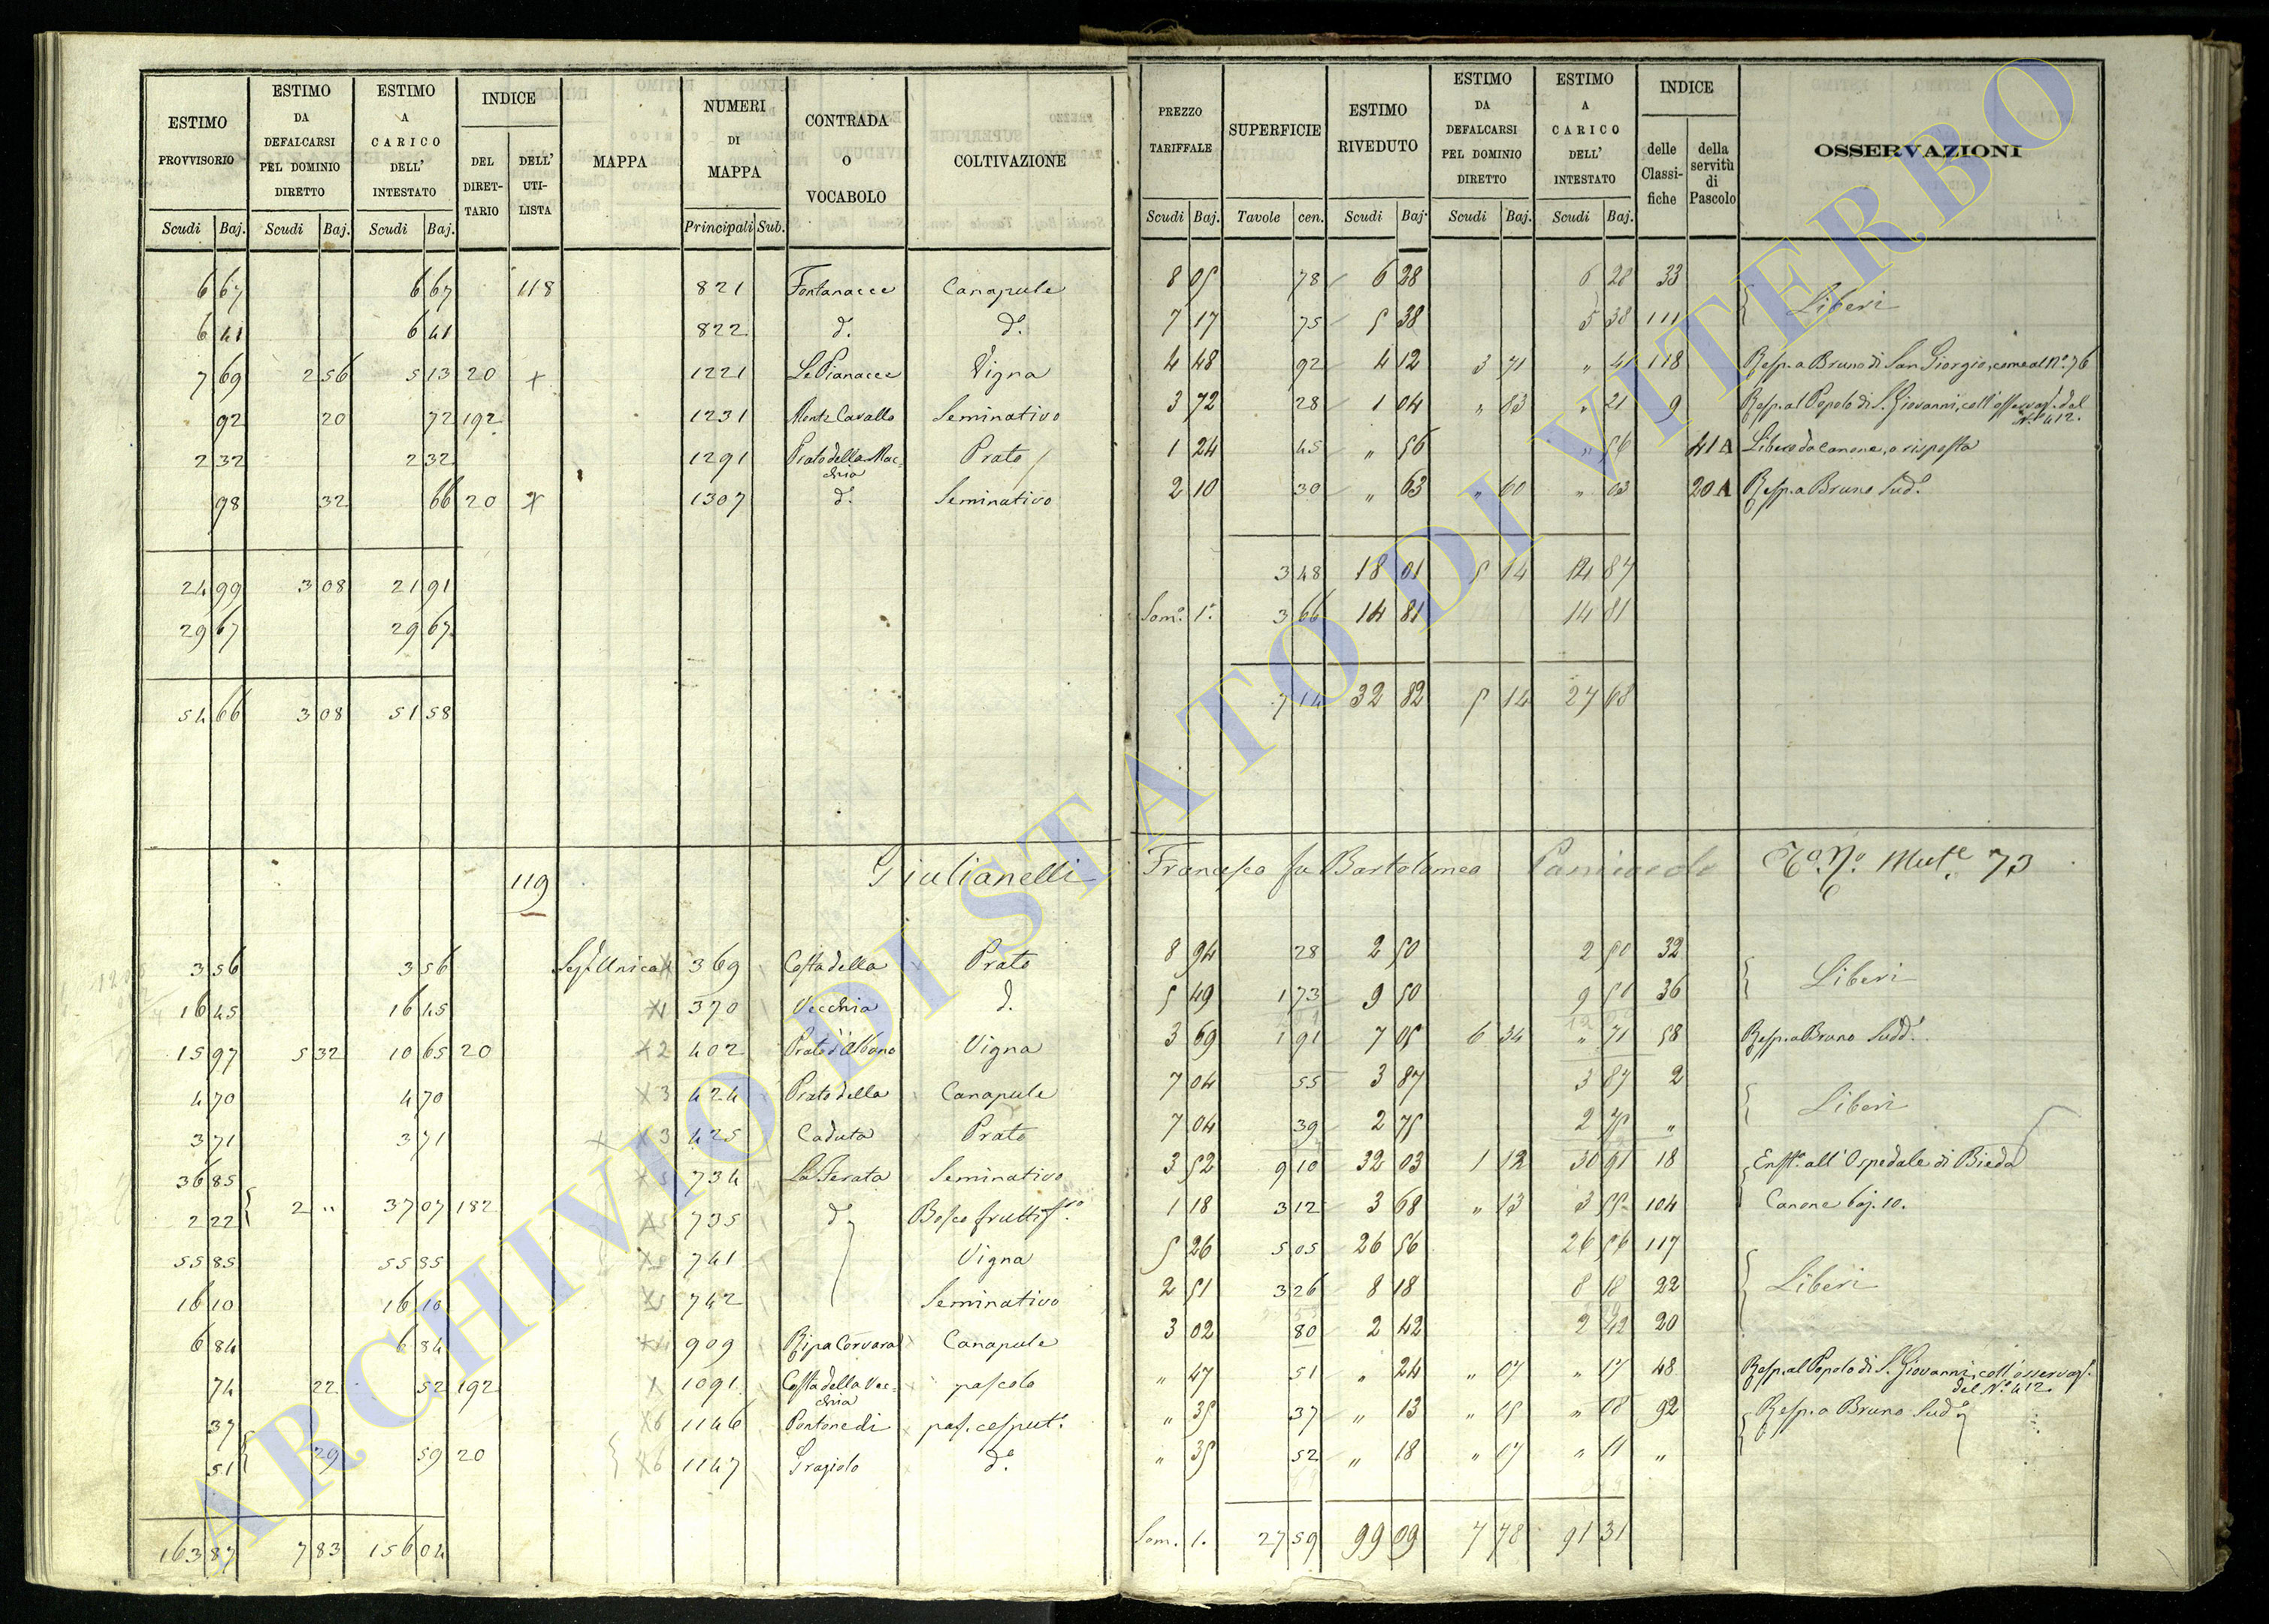 ESTIMO PROVVISORIO | ESTIMO DA DEFALCARSI PEL DOMINIO DIRETTO | ESTIMO A CARICO DELL' INTESTATO | INDICE DEL DIRETTARIO | INDICE DELL' UTILISTA | MAPPA | NUMERI DI MAPPA | CONTRADA O VOCABOLO | COLTIVAZIONE
Scudi Baj. | Scudi Baj. | Scudi Baj. | Principali Sub.
6 67 | 6 67 | 118 | 821 | Fontanacce | Canapule
6 41 | 6 41 | 822 | d.° | d.°
7 69 | 2 56 | 5 13 | 20 | x | 1221 | Le Pianacce | Vigna
92 | 20 | 72 | 192 | 1231 | Monte Cavallo | Seminativo
2 32 | 2 32 | 1291 | Prato della Mac=chia | Prato
98 | 32 | 66 | 20 | x | 1307 | d.° | Seminativo
24 99 | 3 08 | 21 91
29 67 | 29 67
54 66 | 3 08 | 51 58
119 | Giulianelli
3 56 | 3 56 | Sez. Unica | 369 | Costa della | Prato
16 45 | 16 45 | 370 | Vecchia | d.
15 97 | 5 32 | 10 65 | 20 | x 2 | 402 | Prato d'Albano | Vigna
4 70 | 4 70 | x 3 | 424 | Prato della | Canapule
3 71 | 3 71 | x 3 | 425 | Caduta | Prato
36 85 | 734 | La Serata | Seminativo
2 22 | 2 " | 37 07 | 182 | 735 | d.° | Bosco fruttif.ro
55 85 | 55 85 | 741 | Vigna
16 10 | 16 10 | 742 | Seminativo
6 84 | 6 84 | 909 | Ripa Corvara | Canapule
74 | 22 | 52 | 192 | 1091 | Costa della Vec=chia | pascolo
37 | x6 | 1146 | Pontone di | pas. cesput.°
51 | 29 | 59 | 20 | x6 | 1147 | Graziolo | d.°
163 87 | 7 83 | 156 04
PREZZO TARIFFALE | SUPERFICIE | ESTIMO RIVEDUTO | ESTIMO DA DEFALCARSI PEL DOMINIO DIRETTO | ESTIMO A CARICO DELL' INTESTATO | INDICE delle Classifiche | INDICE della servitù di Pascolo | OSSERVAZIONI
Scudi Baj. | Tavole cen. | Scudi Baj. | Scudi Baj. | Scudi Baj.
8 05 | 78 | 6 28 | 6 28 | 33
7 17 | 75 | 5 38 | 5 38 | 111 | Liberi
4 48 | 92 | 4 12 | 3 71 | " 41 | 118 | Resp. a Bruno di San Giorgio, come al N.° 76
3 72 | 28 | 1 04 | " 83 | " 21 | 9 | Resp. al Popolo di S. Giovanni, coll'osservaz. del N.° 412.
1 24 | 45 | " 56 | " 56 | 41 A | Libero da Canone, o risposta
2 10 | 30 | " 63 | " 60 | " 03 | 20 A | Resp. a Bruno Sud.°
3 48 | 18 01 | 5 14 | 12 87
Som.° 1.° | 3 66 | 14 81 | 14 81
7 14 | 32 82 | 5 14 | 27 68
Francesco fu Bartolomeo | Mut.e 73
8 94 | 28 | 2 50 | 2 50 | 32
5 49 | 1 73 | 9 50 | 9 50 | 36 | Liberi
3 69 | 1 91 | 7 05 | 6 34 | " 71 | 58 | Resp. a Bruno Sudd.°
7 04 | 55 | 3 87 | 3 87 | 2
7 04 | 39 | 2 75 | 2 75 | " | Liberi
3 52 | 9 10 | 32 03 | 1 12 | 30 91 | 18 | Enft.° all'Ospedale di Bieda
1 18 | 3 12 | 3 68 | " 13 | 3 55 | 104 | Canone baj. 10.
5 26 | 5 05 | 26 56 | 26 56 | 117
2 51 | 3 26 | 8 18 | 8 18 | 22 | Liberi
3 02 | 80 | 2 42 | 2 42 | 20
" 47 | 51 | " 24 | " 07 | " 17 | 48 | Resp. al Popolo di S. Giovanni, coll'osservaz. del N.° 412.
" 35 | 37 | " 13 | " 05 | " 08 | 92 | Resp. a Bruno Sud.°
" 35 | 52 | " 18 | " 07 | " 11 | "
Som. 1. | 27 59 | 99 09 | 7 78 | 91 31
ARCHIVIO DI STATO DI VITERBO